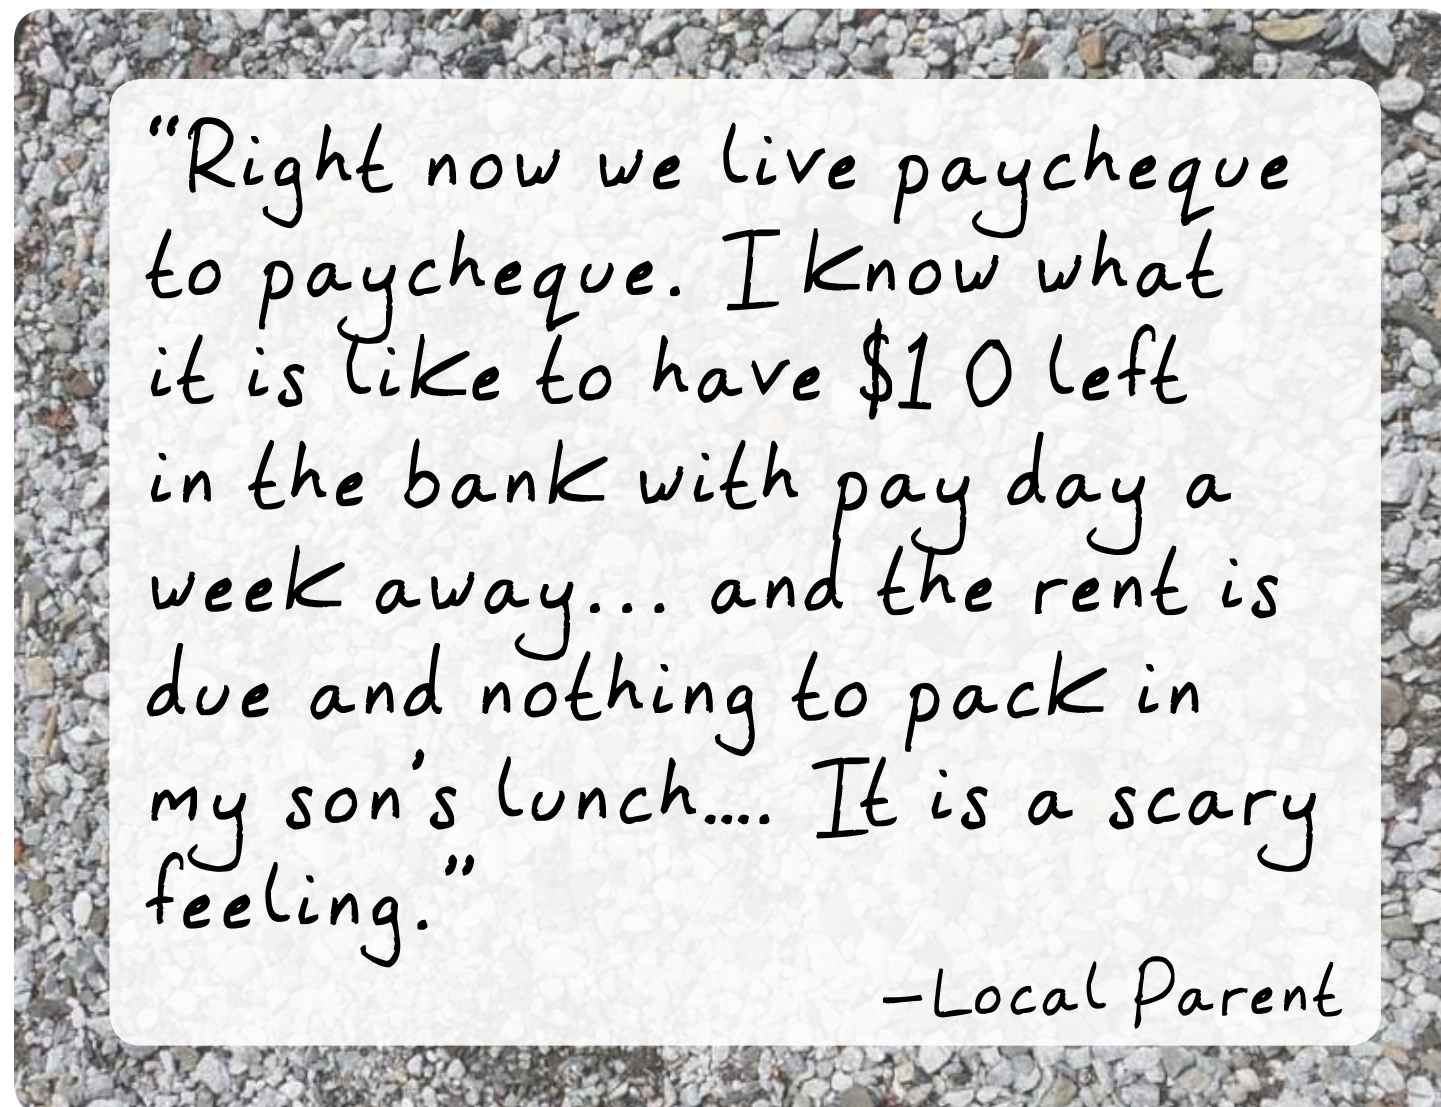 “Right now we live paycheque
to paycheque. I know what
it is like to have $10 left
in the bank with pay day a
week away... and the rent is
due and nothing to pack in
my son’s lunch.... It is a scary
feeling.”
–Local Parent